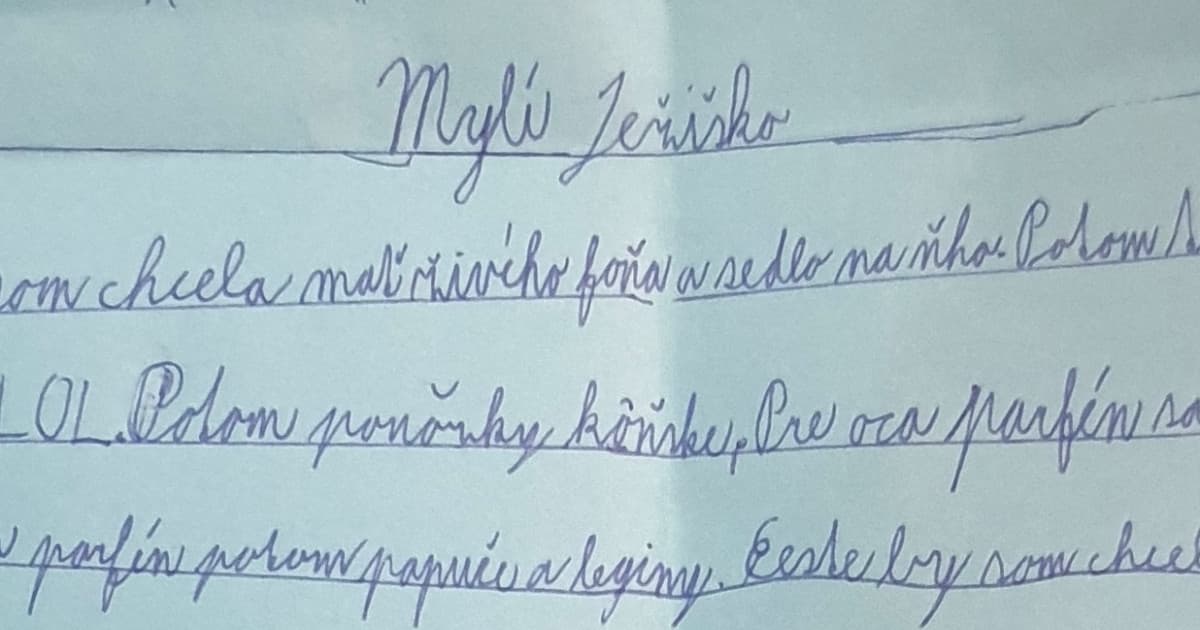 Mylí Ježiško
om chcela mať živého koňa a sedlo na ňho. Potom
LOL. Potom ponožky kôňske, Pre oca parfém so
parfín potom papuče a legíny. Ešte by som chcel